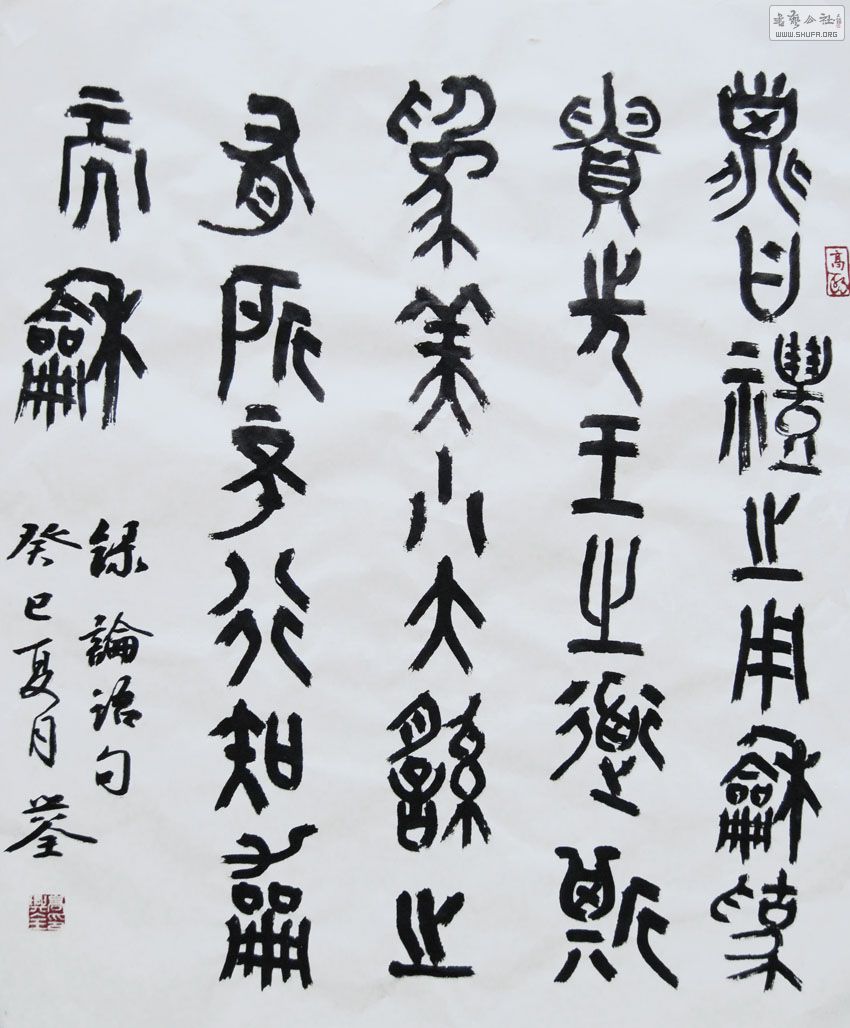 子曰禮之用龢為
貴先王之道斯
為美小大繇之
有所不行知龢
而龢
錄論語句
癸巳夏月
书艺公社
WWW.SHUFA.ORG